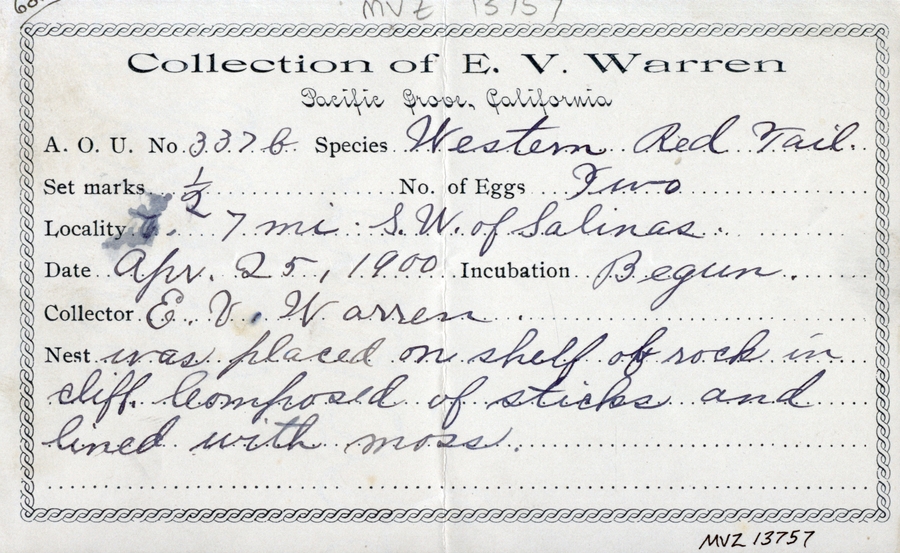 MVZ 13757
Collection of E. V. Warren
Pacific Grove, California
A. O. U. No. 337b Species Western Red Tail.
Set marks 1/2 No. of Eggs Two
Locality 7 mi. S.W. of Salinas.
Date Apr. 25, 1900 Incubation Begun.
Collector E. V. Warren.
Nest was placed on shelf of rock in
cliff. Composed of sticks and
lined with moss.
MVZ 13757